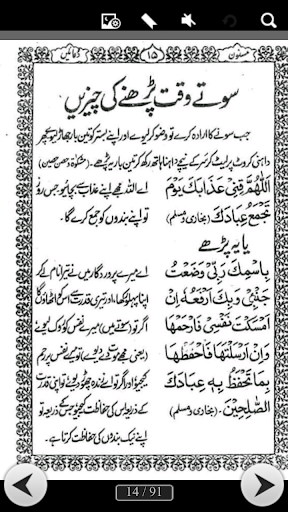 مسنون ۱۵ دُعائیں
سوتے وقت پڑھنے کی چیزیں
جب سونے کا ارادہ کرے تو وضو کر لیوے اور اپنے بستر کو تین بار جھاڑ لیوے پھر
داہنی کروٹ پر لیٹ کر سر کے نیچے داہنا ہاتھ رکھ کر تین بار یہ پڑھے۔ (مشکوٰۃ وحصن حصین)
اَللّٰهُمَّ قِنِيْ عَذَابَكَ يَوْمَ
تَجْمَعُ عِبَادَكَ (بخاری و مسلم)
اے اللہ مجھے اپنے عذاب سے بچائیو جس روز
تو اپنے بندوں کو جمع کرے گا۔
یا یہ پڑھے
بِاسْمِكَ رَبِّيْ وَضَعْتُ
جَنْبِيْ وَبِكَ اَرْفَعُهٗ اِنْ
اَمْسَكْتَ نَفْسِيْ فَارْحَمْهَا
وَاِنْ اَرْسَلْتَهَا فَاحْفَظْهَا
بِمَا تَحْفَظُ بِهٖ عِبَادَكَ
الصَّالِحِيْنَ۔ (بخاری و مسلم)
اے میرے پروردگار میں نے تیرا نام لے کر
اپنا پہلو رکھا، اور تیری قدرت سے اس کو اٹھاؤں گا
اگر تو (سوتے میں) میرے نفس کو روک لیوے
(یعنی مجھے موت دے دیوے) تو میرے نفس پر رحم
کیجیو اور اگر تو اسے زندہ چھوڑ دیوے تو اپنی قدرت
کے ذریعہ اس کی حفاظت کیجیو جس کے ذریعہ تو
اپنے نیک بندوں کی حفاظت کرتا ہے۔
14 / 91